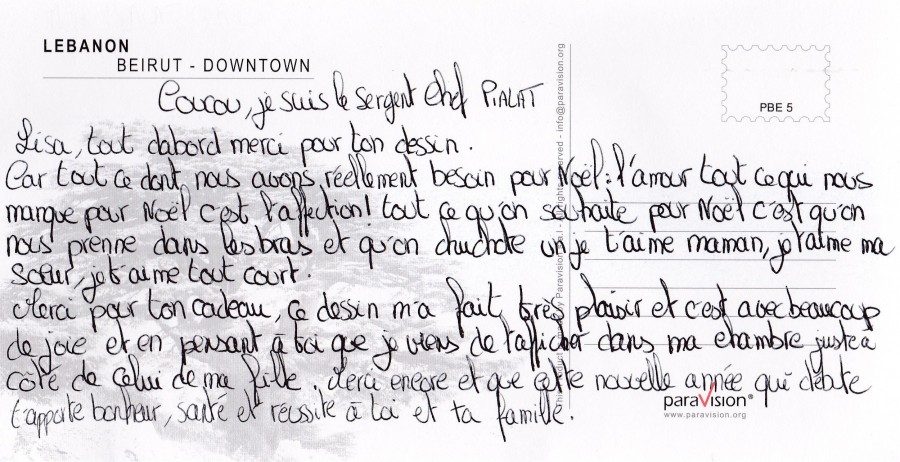 LEBANON
BEIRUT - DOWNTOWN
PBE 5
Coucou, je suis le sergent chef PIALAT
Lisa, tout dabord merci pour ton dessin.
Car tout ce dont nous avons réellement besoin pour Noël : l'amour tout ce qui nous
manque pour Noël c'est l'affection! tout ce qu'on souhaite pour Noël c'est qu'on
nous prenne dans les bras et qu'on chuchote un je t'aime maman, je t'aime ma
sœur, je t'aime tout court.
Merci pour ton cadeau, ce dessin m'a fait très plaisir et c'est avec beaucoup
de joie et en pensant à toi que je viens de l'afficher dans ma chambre juste à
côté de celui de ma fille. Merci encore et que cette nouvelle année qui débute
t'apporte bonheur, santé et réussite à toi et ta famille.
paraVision®
www.paravision.org
Paravision
reserved - info@paravision.org